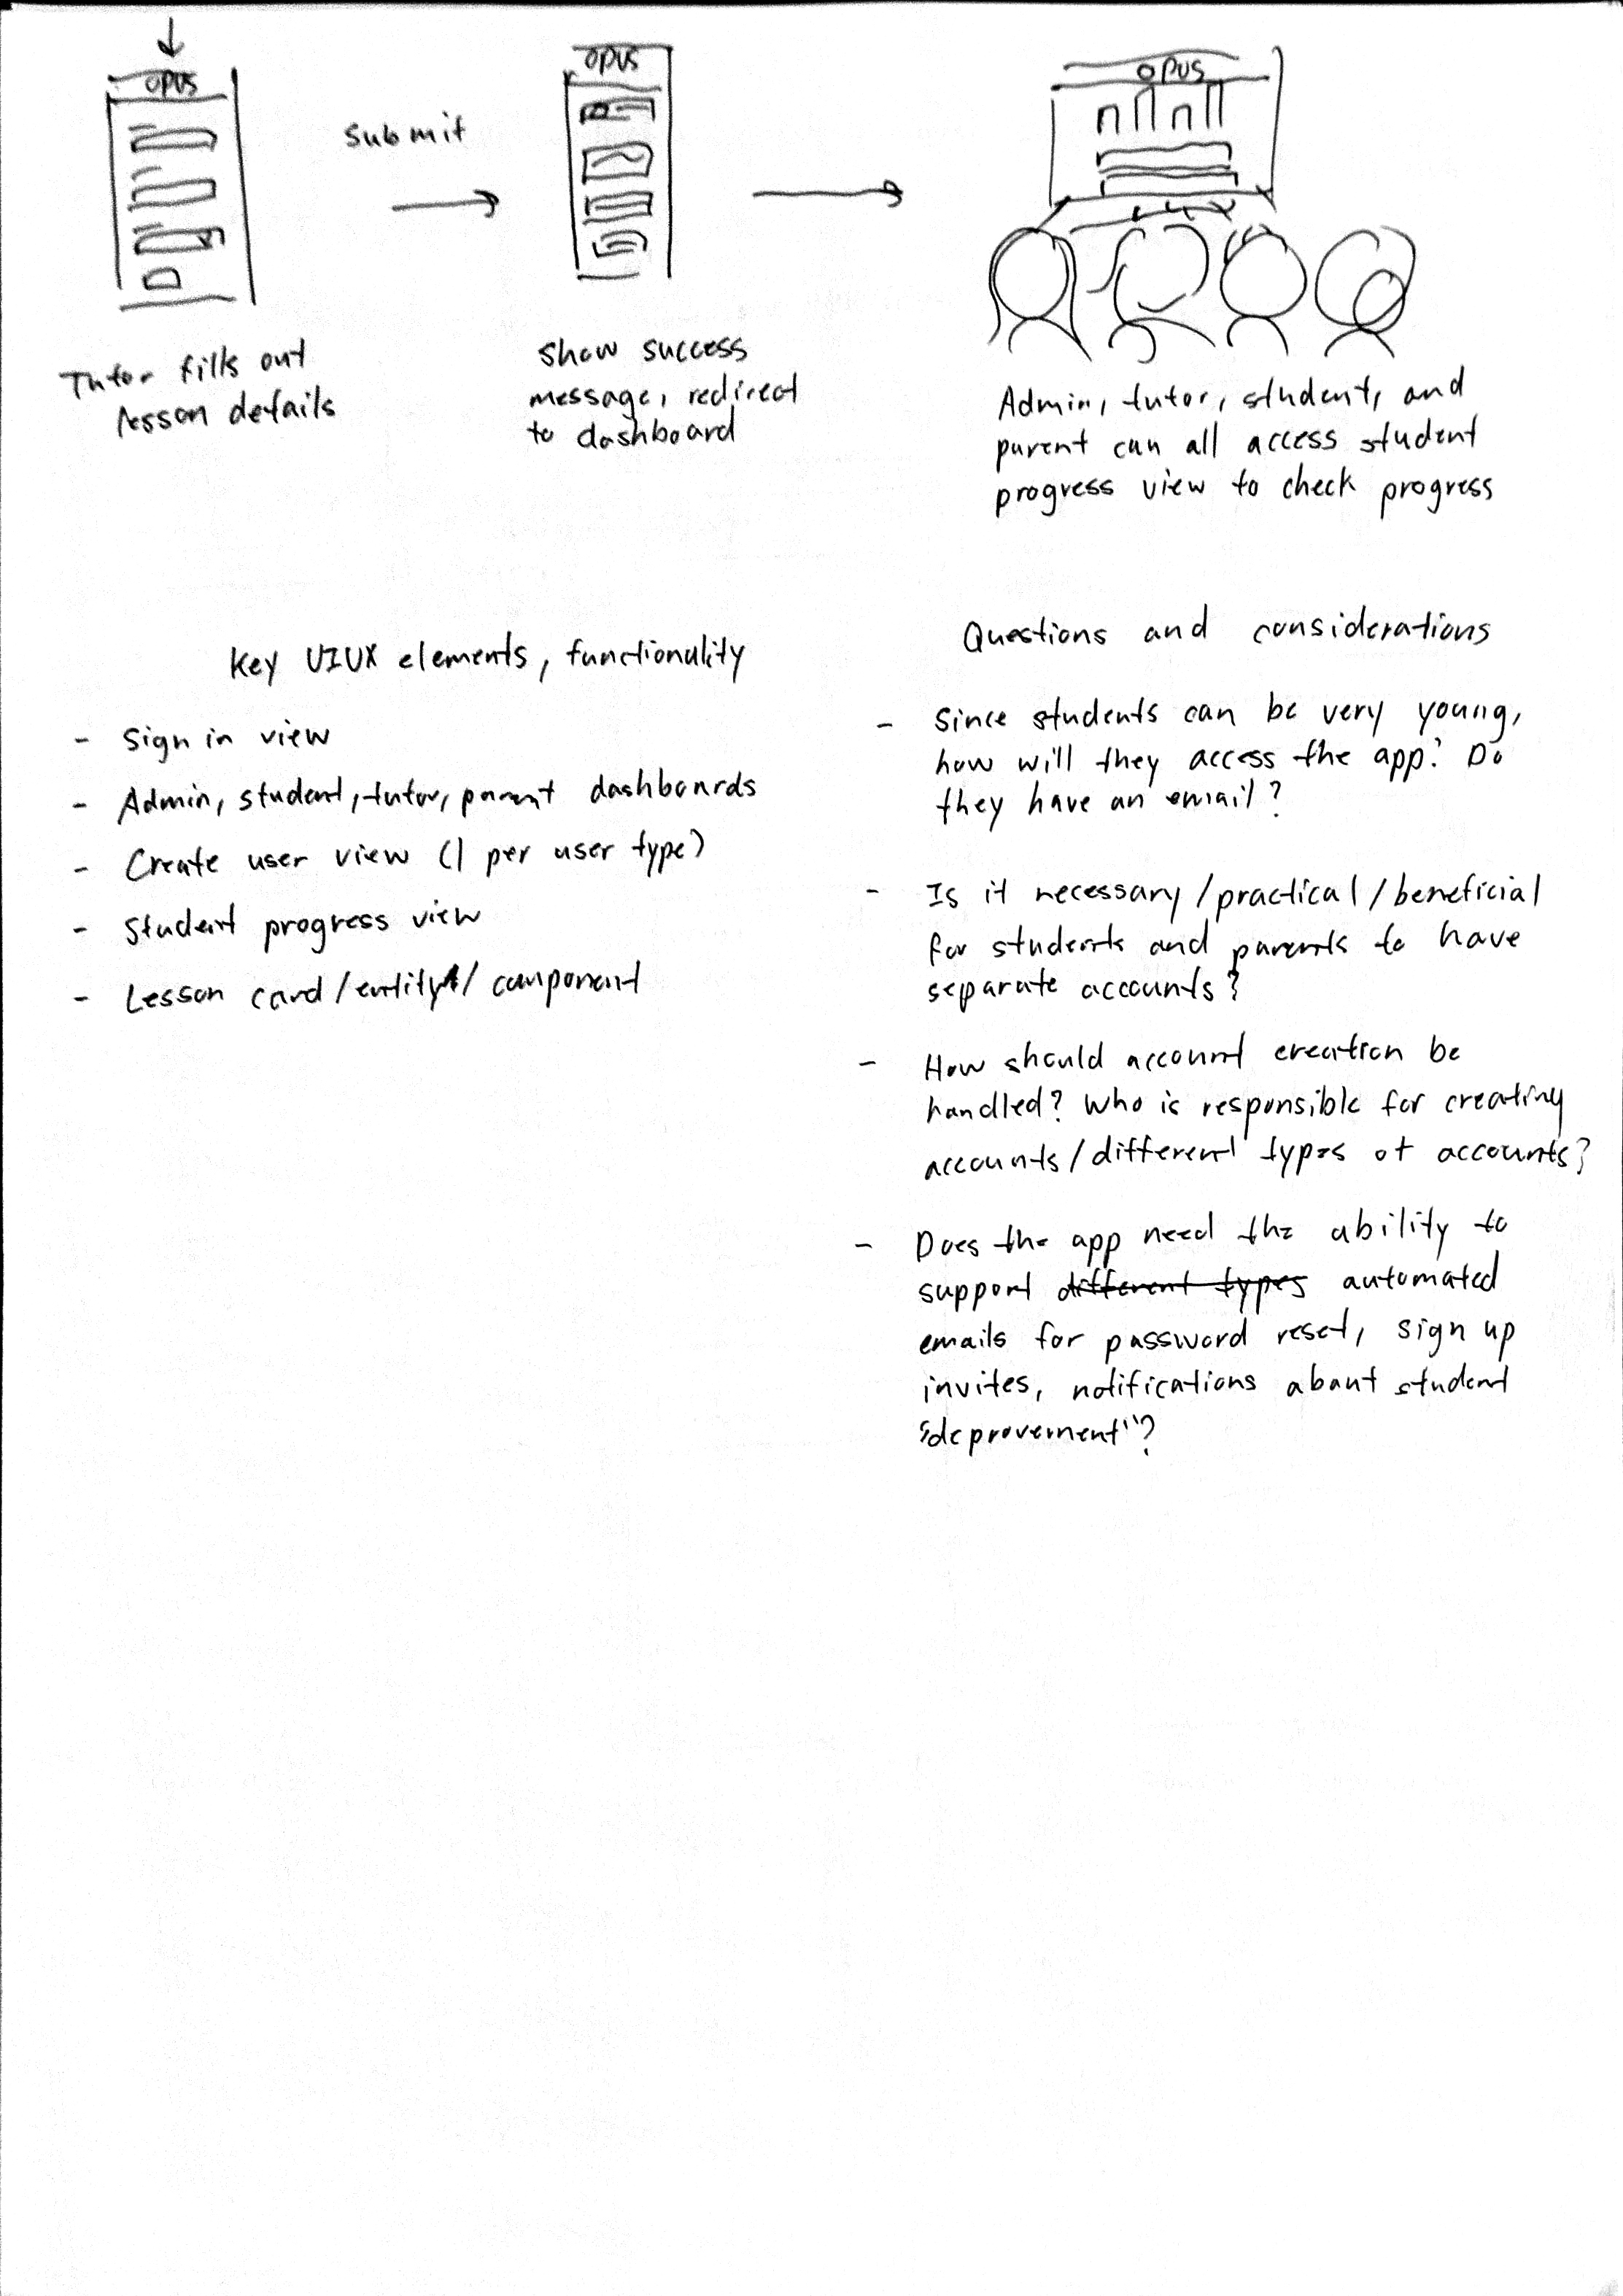 OPUS
Submit
OPUS
OPUS
Tutor fills out
lesson details
Show success
message, redirect
to dashboard
Admin, tutor, student, and
parent can all access student
progress view to check progress
Key UIUX elements, functionality
- Sign in view
- Admin, student, tutor, parent dashboards
- Create user view (1 per user type)
- Student progress view
- Lesson card/entity/component
Questions and considerations
- Since students can be very young,
how will they access the app? Do
they have an email?
- Is it necessary/practical/beneficial
for students and parents to have
separate accounts?
- How should account creation be
handled? Who is responsible for creating
accounts/different types of accounts?
- Does the app need the ability to
support different types automated
emails for password reset, sign up
invites, notifications about student
"deprovement"?